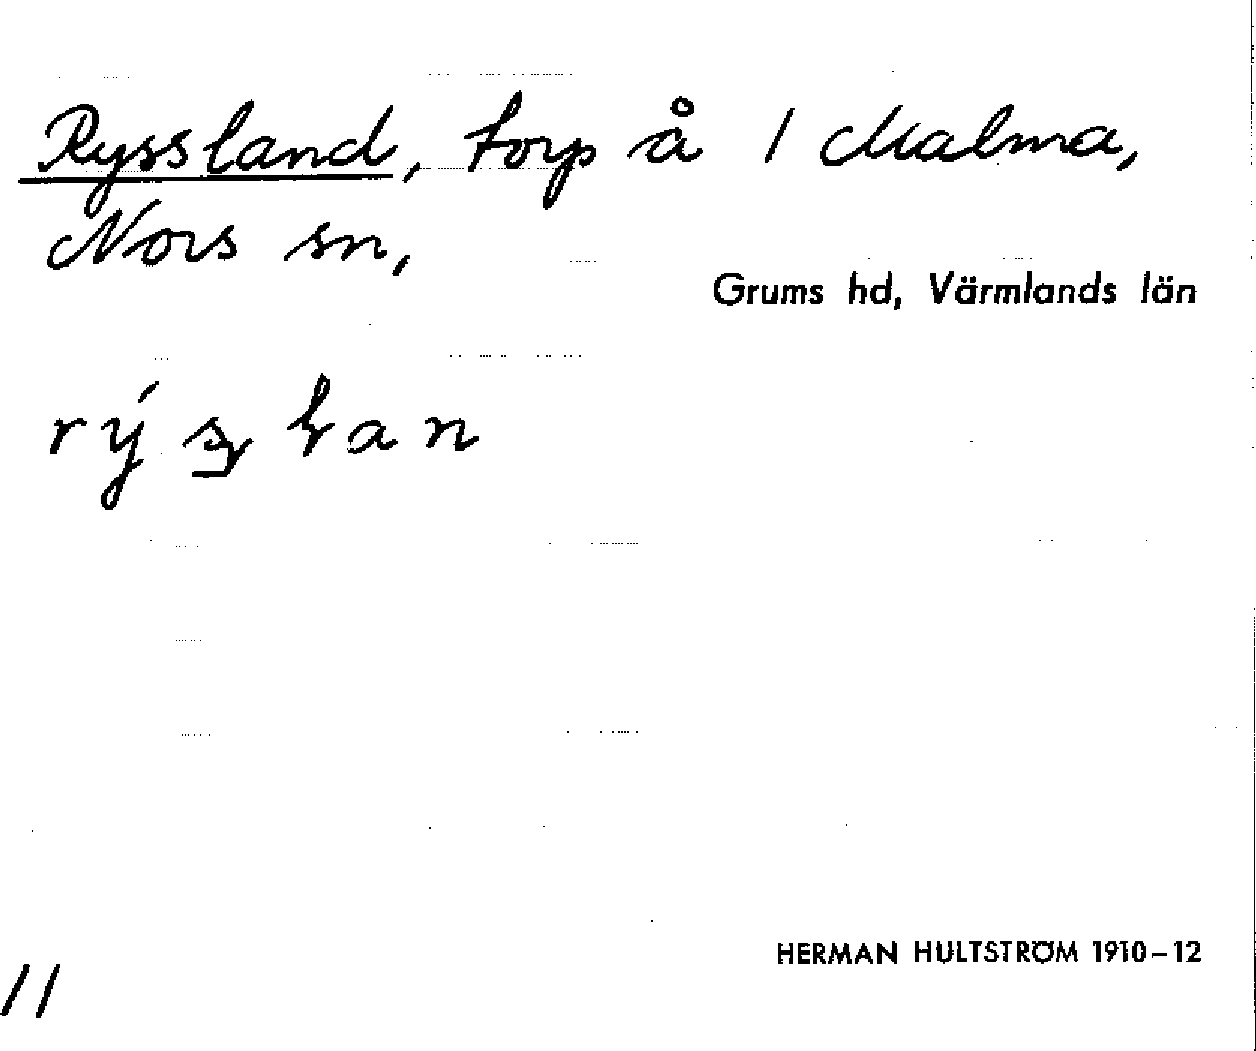 Ryssland, torp å 1 Malma,
Nors sn,
Grums hd, Värmlands län
HERMAN HULTSTRÖM 1910–12
11